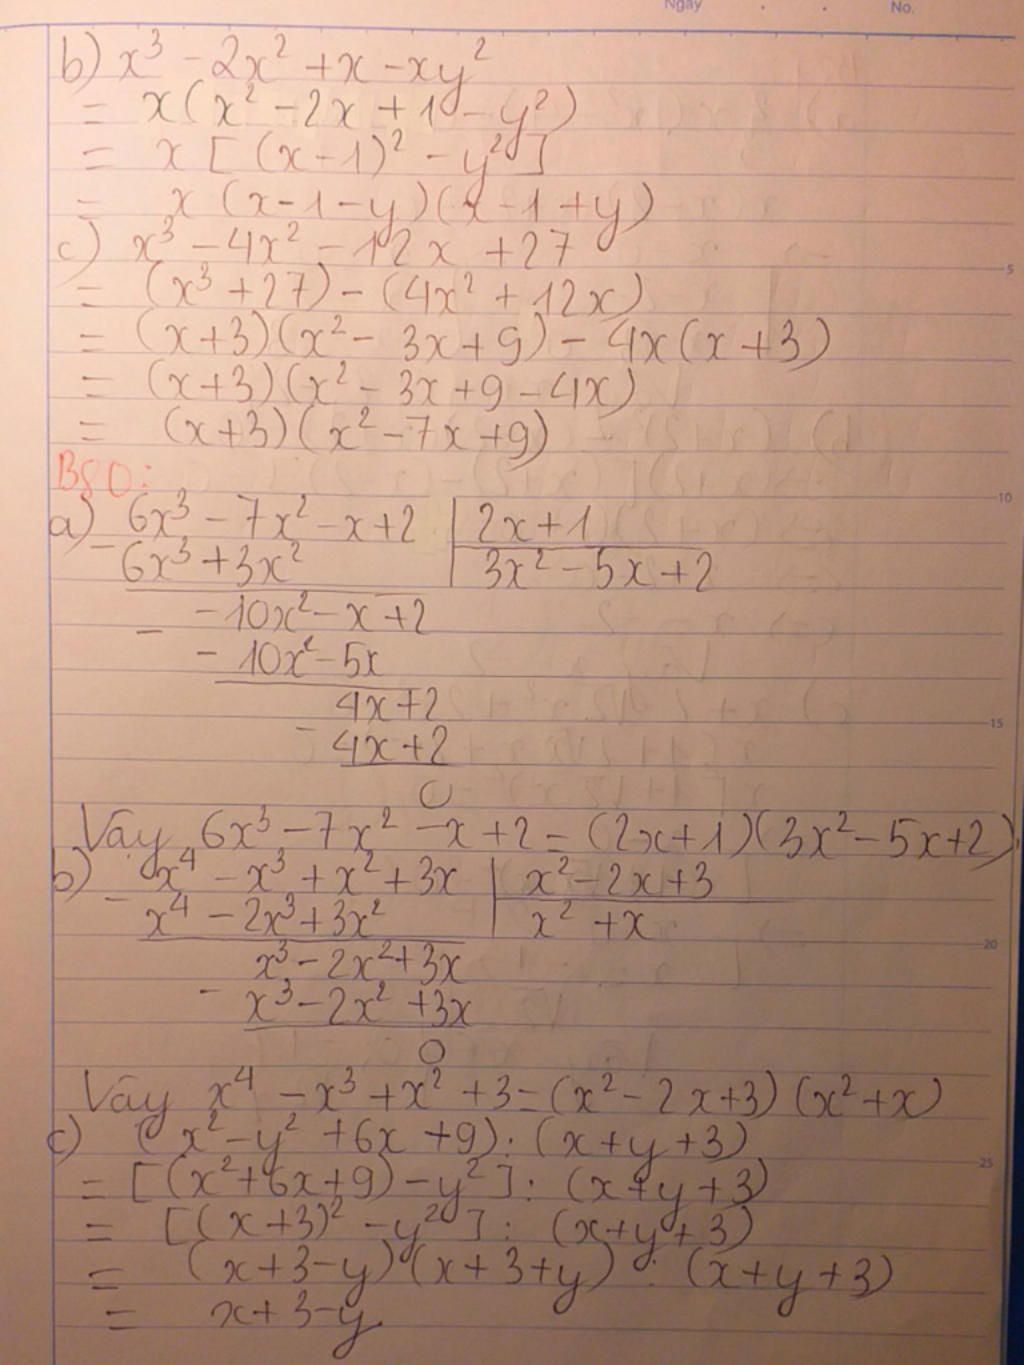 Ngày . . No.
b) x³ - 2x² + x - xy²
= x(x² - 2x + 1 - y²)
= x [ (x-1)² - y² ]
= x (x-1-y)(x-1+y)
c) x³ - 4x² - 12x + 27
= (x³ + 27) - (4x² + 12x)
= (x+3)(x² - 3x+9) - 4x(x+3)
= (x+3)(x² - 3x+9 - 4x)
= (x+3)(x² - 7x+9)
B80:
a) 6x³ - 7x² - x + 2 | 2x + 1
- 6x³ + 3x² | 3x² - 5x + 2
- 10x² - x + 2
- - 10x² - 5x
4x + 2
- 4x + 2
0
Vậy 6x³ - 7x² - x + 2 = (2x+1)(3x² - 5x + 2)
b) x⁴ - x³ + x² + 3x | x² - 2x + 3
- x⁴ - 2x³ + 3x² | x² + x
x³ - 2x² + 3x
- x³ - 2x² + 3x
0
Vậy x⁴ - x³ + x² + 3 = (x² - 2x+3) (x² + x)
c) (x² - y² + 6x + 9) : (x + y + 3)
= [(x² + 6x + 9) - y²] : (x + y + 3)
= [(x+3)² - y²] : (x+y+3)
= (x+3-y)(x+3+y) : (x+y+3)
= x+3-y
5
10
15
20
25